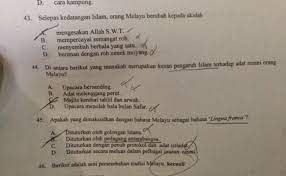 D. cara kampung.
43. Selepas kedatangan Islam, orang Melayu berubah kepada akidah
A. mengesakan Allah S.W.T.
B. mempercayai semangat roh.
C. menyembah berhala yang satu.
D. beriman dengan roh nenek moyang.
44. Di antara berikut yang manakah merupakan kesan pengaruh Islam terhadap adat resmi orang
Melayu?
A. Upacara bersanding.
B. Adat melenggang perut.
C. Majlis kenduri tahlil dan arwah.
D. Upacara menolak bala bulan Safar.
45. Apakah yang dimaksudkan dengan bahasa Melayu sebagai bahasa 'Lingua franca'?
A. Dituturkan oleh golongan Islam.
B. Dituturkan oleh pedagang antarabangsa.
C. Dituturkan dengan penuh protokol dan adat
D. Dituturkan secara meluas dalam pelbagai
46. Berikut adalah seni persembahan tradisi Melayu, kecuali